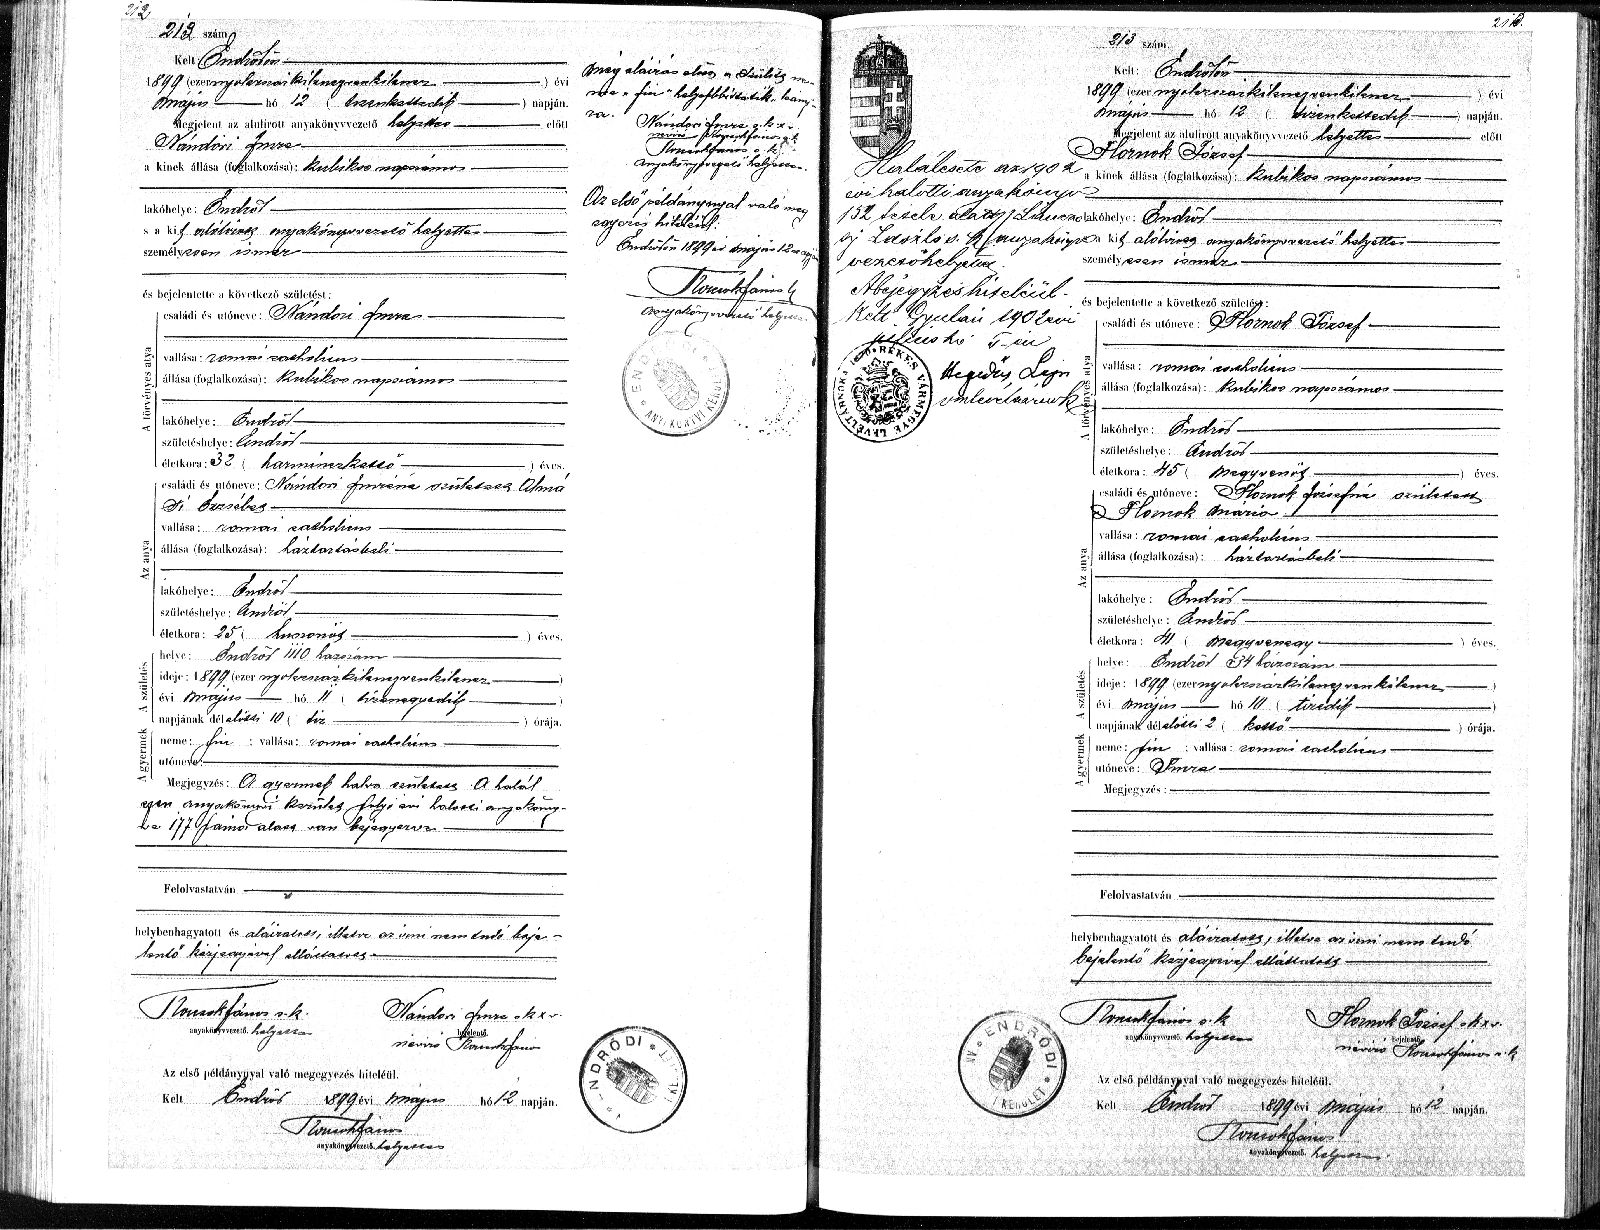 212
212 szám
Kelt Endrődön
1899 (ezernyolczszázkilenczvenkilencz ) évi
május hó 12 ( tizenkettedik ) napján.
Megjelent az alulirott anyakönyvvezető helyettes előtt
Nándori Imre
a kinek állása (foglalkozása): kubikos napszámos
lakóhelye: Endrőd
s a kit alólirott anyakönyvvezető helyettes
személyesen ismer
és bejelentette a következő születést:
A törvényes atya
családi és utóneve: Nándori Imre
vallása: romai catholicus
állása (foglalkozása): kubikos napszámos
lakóhelye: Endrőd
születéshelye: Endrőd
életkora: 32 ( harminczkettő ) éves.
Az anya
családi és utóneve: Nándori Imréné született Almá
si Erzsébet
vallása: romai catholicus
állása (foglalkozása): háztartásbeli
lakóhelye: Endrőd
születéshelye: Endrőd
életkora: 25 ( huszonöt ) éves.
A születés
helye: Endrőd 1110 házszám
ideje: 1899 (ezer nyolczszázkilenczvenkilencz )
évi május hó 11 ( tizenegyedik )
napjának délelőtti 10 ( tiz ) órája.
A gyermek
neme: fiu : vallása: romai catholicus
utóneve:
Megjegyzés: A gyermek halva született. A halál
eset anyakönyvi kerület folyó évi halotti anyaköny-
be 177 szám alatt van bejegyezve
Felolvastatván
helybenhagyatott és aláiratott, illetve az irni nem tudó beje-
lentő kézjegyével elláttatott
János s.k.
anyakönyvvezető. helyettes
Nándori Imre s.k. x v.
bejelentő.
névíró János
Az első példánynyal való megegyezés hiteléül.
Kelt Endrőd 1899 évi május hó 12 napján.
János
anyakönyvvezető. helyettes
még aláirás előtt a szülött ne-
me "fiu" helyesbbittetik leány-
ra.
Nándori Imre s.k. x v.
névíró János s.k.
János s.k.
anyakönyvvezető helyettes
Az első példánynyal való meg
egyezés hiteléül.
Endrődön 1899 évi május 12
János
anyakönyvvezető helyettes
ENDRŐDI * ANYAKÖNYVI KERÜLET *
ENDRŐDI *
213
213 szám
Kelt: Endrődön
1899 (ezer nyolczszázkilenczvenkilencz ) évi
május hó 12 ( tizenkettedik ) napján.
Megjelent az alulirott anyakönyvvezető helyettes előtt
Hornok József
a kinek állása (foglalkozása): kubikos napszámos
lakóhelye: Endrőd
s a kit alólirott anyakönyvvezető helyettes
személyesen ismer
és bejelentette a következő születést:
A törvényes atya
családi és utóneve: Hornok József
vallása: romai catholicus
állása (foglalkozása): kubikos napszámos
lakóhelye: Endrőd
születéshelye: Endrőd
életkora: 45 ( negyvenöt ) éves.
Az anya
családi és utóneve: Hornok Józsefné született
Hornok Mária
vallása: romai catholicus
állása (foglalkozása): háztartásbeli
lakóhelye: Endrőd
születéshelye: Endrőd
életkora: 41 ( negyvenegy ) éves.
A születés
helye: Endrőd 734 házszám
ideje: 1899 (ezer nyolczszázkilenczvenkilencz )
évi május hó 10 ( tizedik )
napjának délelőtti 2 ( kettő ) órája.
A gyermek
neme: fiu : vallása: romai catholicus
utóneve: Imre
Megjegyzés:
Felolvastatván
helybenhagyatott és aláiratott, illetve az irni nem tudó
bejelentő kézjegyével elláttatott
János s.k.
anyakönyvvezető. helyettes
Hornok József s.k. x v.
bejelentő.
névíró János s.k.
Az első példánynyal való megegyezés hiteléül.
Kelt Endrőd 1899 évi május hó 12 napján.
János
anyakönyvvezető. helyettes
Halálesete az 1902
évi halotti anyakönyv
152 tétele alatt,
László s. k. anyakönyv
vezetőhelyettes.
A bejegyzés hiteléül.
Kelt Gyulán 1902 évi
hó 5-én
Hegedüs Lajos
vmlevéltárnok
BÉKÉS VÁRMEGYE LEVÉLTÁRNOKA
ENDRŐDI * KERÜLET